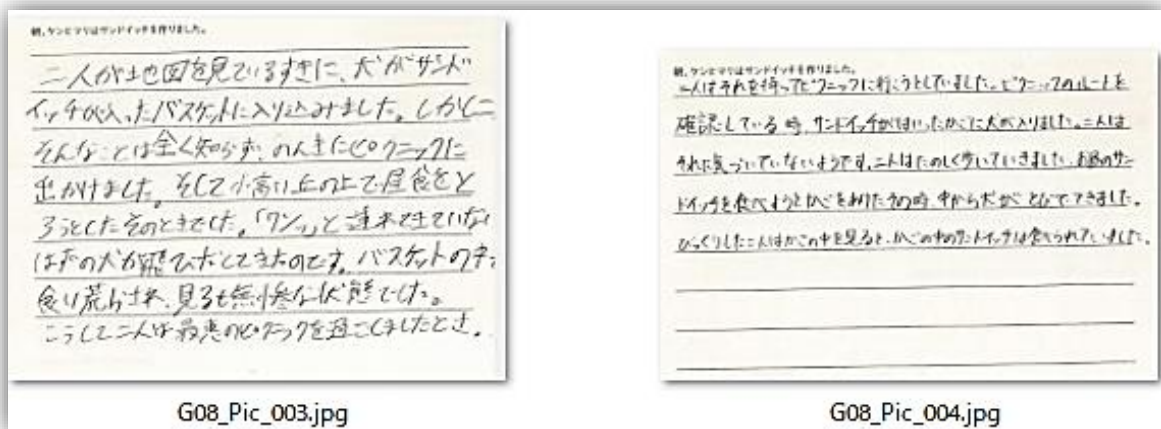 朝、ケンとマリはサンドイッチを作りました。
二人が地図を見ているすきに、犬がサンド
イッチが入ったバスケットに入り込みました。しかし二
そんなことは全く知らず、のん きにピクニックに
出かけました。そして小高い丘の上で昼食をと
ろうとしたそのときでした。「ワン」と連れてきていない
はずの犬が飛びだしてきたのです。バスケットの中
食い荒らされ、見るも無惨な状態でした。
こうして二人は最悪のピクニックを過ごしましたとさ。
G08_Pic_003.jpg
朝、ケンとマリはサンドイッチを作りました。
二人はそれを持ってピクニックに行こうとしていました。ピクニックのルートを
確認している時、サンドイッチがはいったかごに犬が入りました。二人は
それに気づいていないようです。二人はたのしく歩いていきました。お昼のサン
ドイッチを食べようとかごをあけたその時 中から犬が とびでてきました。
びっくりした二人はかごの中を見ると、かごの中のサンドイッチは食べられていました。
G08_Pic_004.jpg